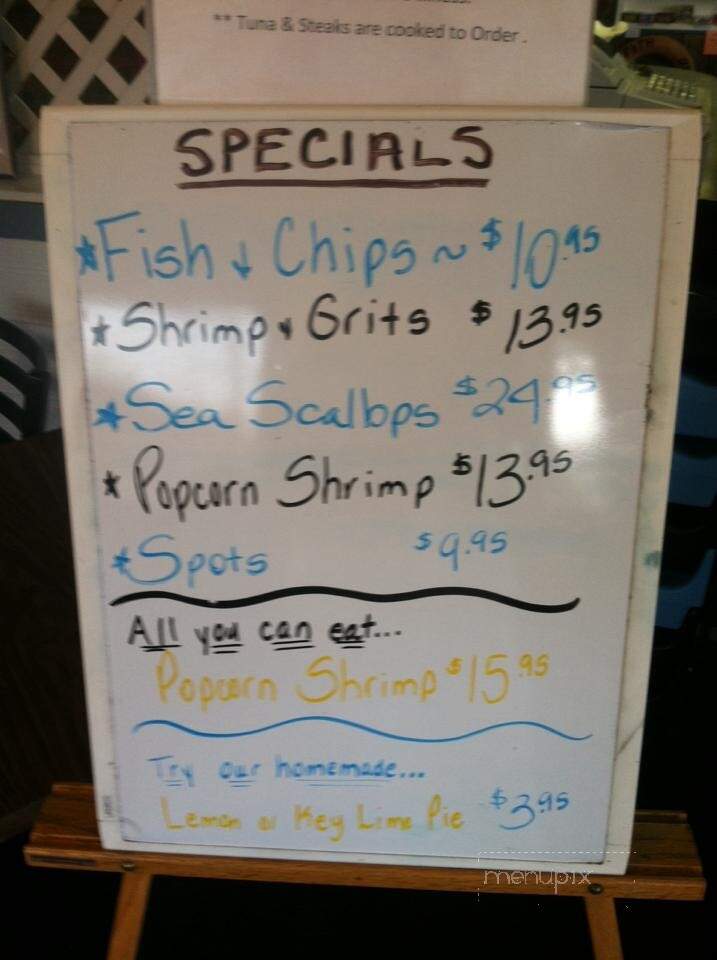 ** Tuna & Steaks are cooked to Order.
SPECIALS
* Fish & Chips ~ $10.95
* Shrimp & Grits $13.95
* Sea Scallops $24.95
* Popcorn Shrimp $13.95
* Spots $9.95
All you can eat...
Popcorn Shrimp $15.95
Try our homemade...
Lemon or Key Lime Pie $3.95
menupix